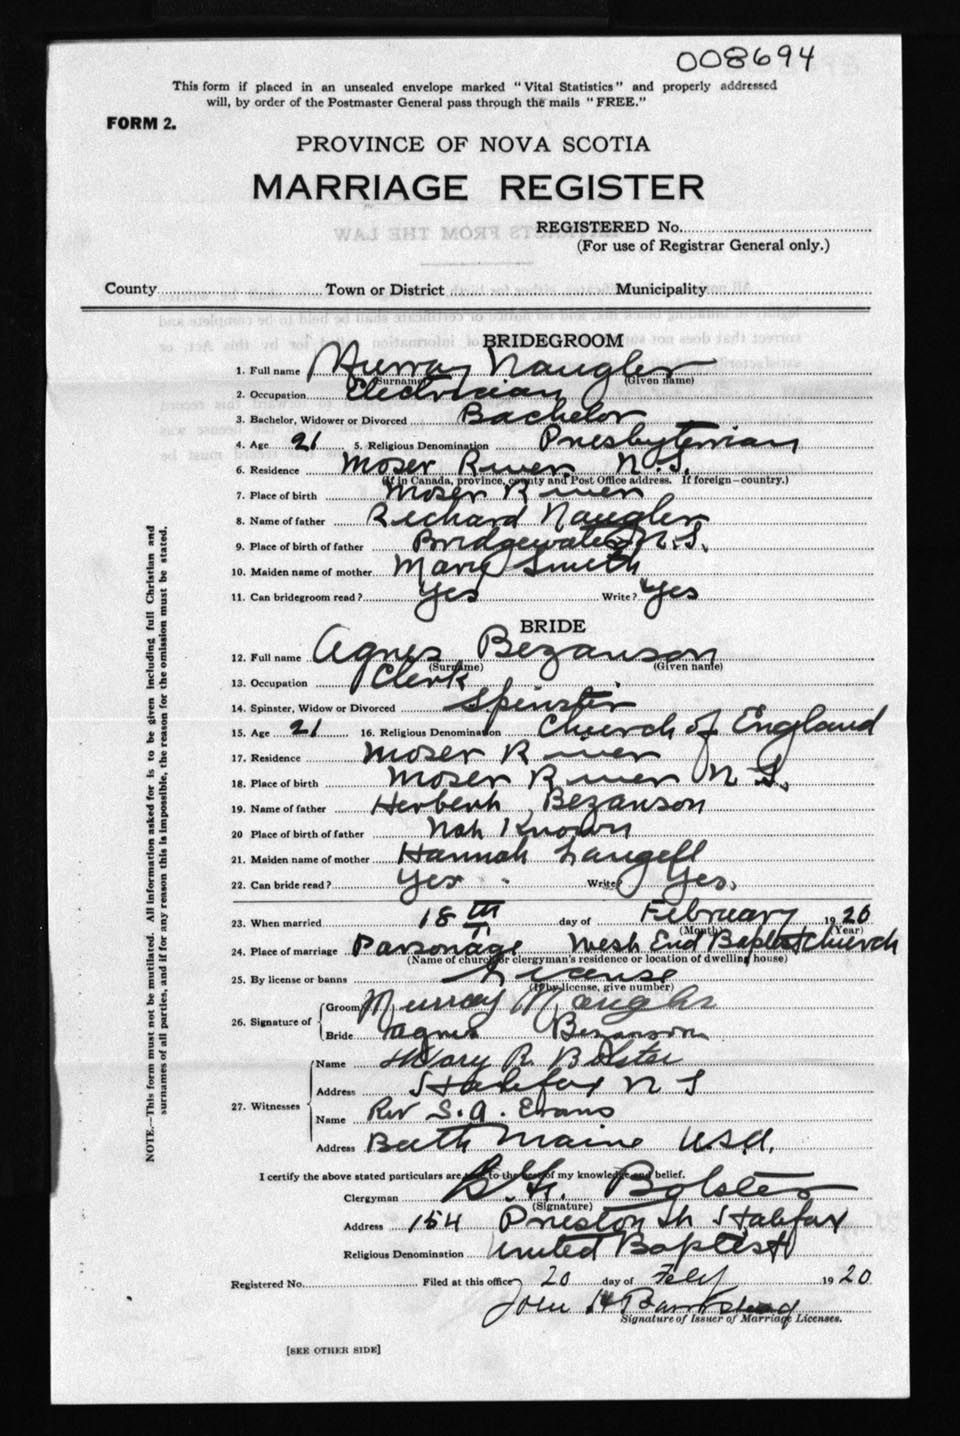 008694
This form if placed in an unsealed envelope marked "Vital Statistics" and properly addressed
will, by order of the Postmaster General pass through the mails "FREE."
FORM 2.
PROVINCE OF NOVA SCOTIA
MARRIAGE REGISTER
REGISTERED No.
(For use of Registrar General only.)
County Town or District Municipality
BRIDEGROOM
1. Full name Murray Naugler
(Surname) (Given name)
2. Occupation Electrician
3. Bachelor, Widower or Divorced Bachelor
4. Age 21 5. Religious Denomination Presbyterian
6. Residence Moser River N.S.
(If in Canada, province, county and Post Office address. If foreign—country.)
7. Place of birth Moser River
8. Name of father Richard Naugler
9. Place of birth of father Bridgewater N.S.
10. Maiden name of mother Mary Smith
11. Can bridegroom read? Yes Write? Yes
BRIDE
12. Full name Agnes Bezanson
(Surname) (Given name)
13. Occupation Clerk
14. Spinster, Widow or Divorced Spinster
15. Age 21 16. Religious Denomination Church of England
17. Residence Moser River
18. Place of birth Moser River N S.
19. Name of father Herbert Bezanson
20 Place of birth of father Not Known
21. Maiden name of mother Hannah Langell
22. Can bride read? Yes Write? Yes.
23. When married 18th day of February 1920
(Month) (Year)
24. Place of marriage Parsonage West End Baptist Church
(Name of church or clergyman's residence or location of dwelling house)
25. By license or banns License
(If by license, give number)
26. Signature of Groom Murray Naugler
Bride Agnes Bezanson
27. Witnesses Name Mary R. Bolster
Address Halifax N S
Name Rev S.A. Evans
Address Bath Maine U.S.A.
I certify the above stated particulars are true to the best of my knowledge and belief.
Clergyman Bolster
(Signature)
Address 154 Preston St Halifax
Religious Denomination United Baptist
Registered No. Filed at this office 20 day of Feby 1920
John H Barnstead
Signature of Issuer of Marriage Licenses.
[SEE OTHER SIDE]
NOTE.—This form must not be mutilated. All information asked for is to be given including full Christian and
surnames of all parties, and if for any reason this is impossible, the reason for the omission must be stated.